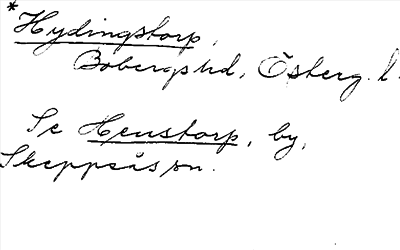 *Hydingstorp,
Bobergs hd, Österg. l.
Se Heustorp, by,
Skeppsås sn.